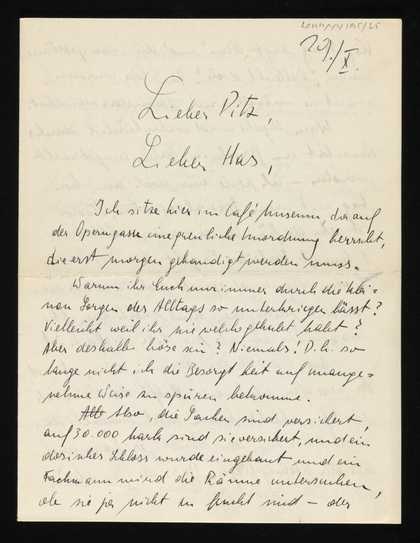 29./X
Lieber Pitz,
Lieber Has,
Ich sitze hier im Café Museum, da auf
der Operngasse eine greuliche Unordnung herrscht,
die erst morgen gebändigt werden muss.
Warum ihr Euch nur immer durch die klei-
nen Sorgen des Alltags so unterkriegen lässt?
Vielleicht weil ihr nie welche gehabt habt?
Aber deshalb böse sein? Niemals! D.h. so
lange nicht ich die Besorgtheit auf unange-
nehme Weise zu spüren bekomme.
Also, die Sachen sind versichert,
auf 30.000 Mark sind sie versichert, und ein
Schloss wurde eingebaut und ein
Fachmann wird die Räume untersuchen,
ob sie ja nicht zu feucht sind – der